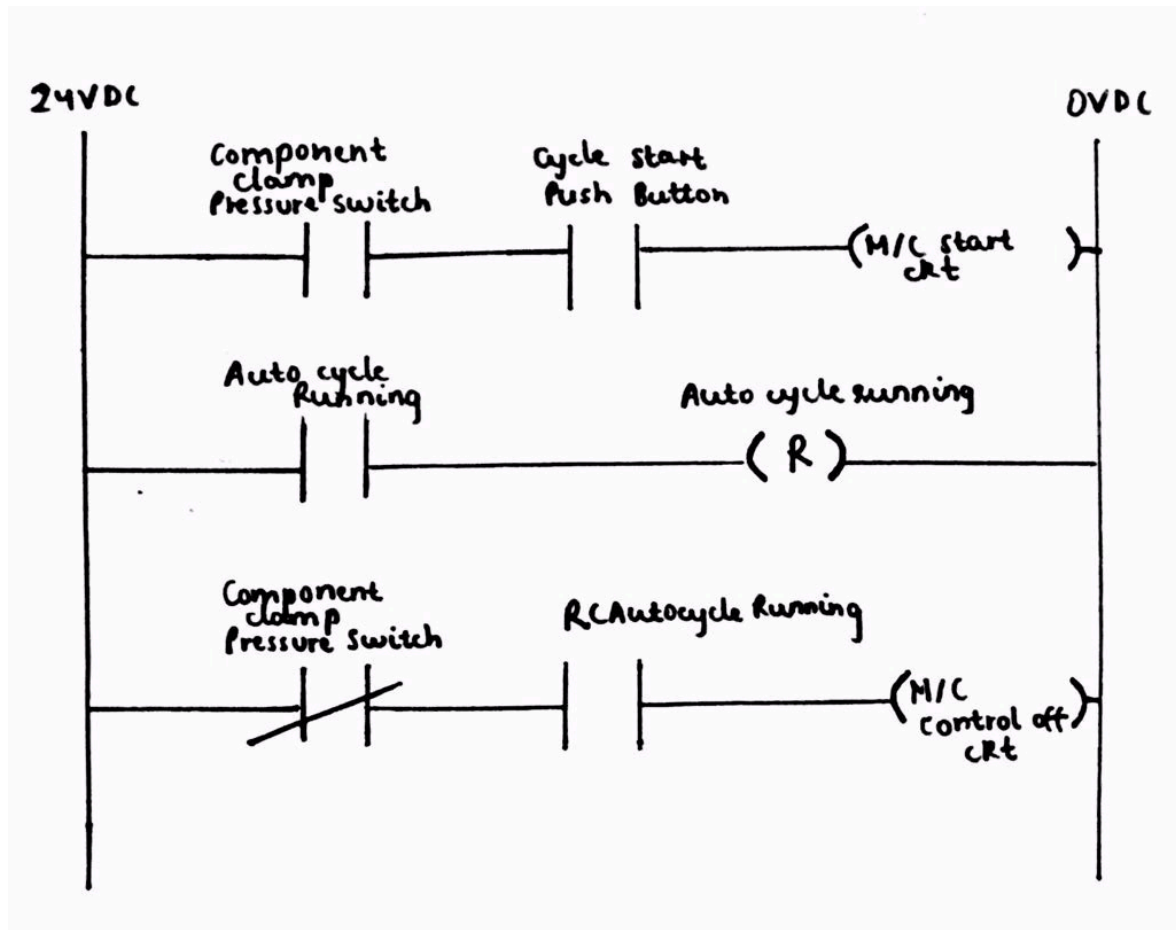 24VDC
0VDC
Component
clamp
Pressure Switch
Cycle Start
Push Button
(M/C start
ckt )
Auto cycle
Running
Auto cycle running
( R )
Component
clamp
Pressure Switch
RCAutocycle Running
(M/C
control off)
ckt